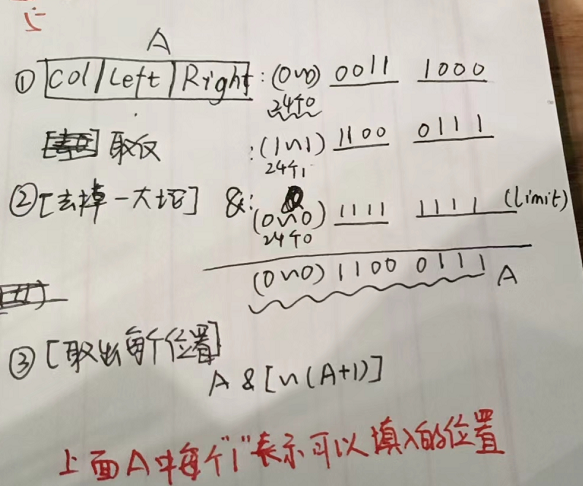 A
① Col/Left/Right : (0~0) 0011 1000
24个0
取反 : (1~1) 1100 0111
24个1
② [去掉一大坨] &: (0~0) 1111 1111 (limit)
24个0
(0~0) 1100 0111 A
③ [取出每个位置]
A & [~(A+1)]
上面A中每个"1"表示可以填入的位置